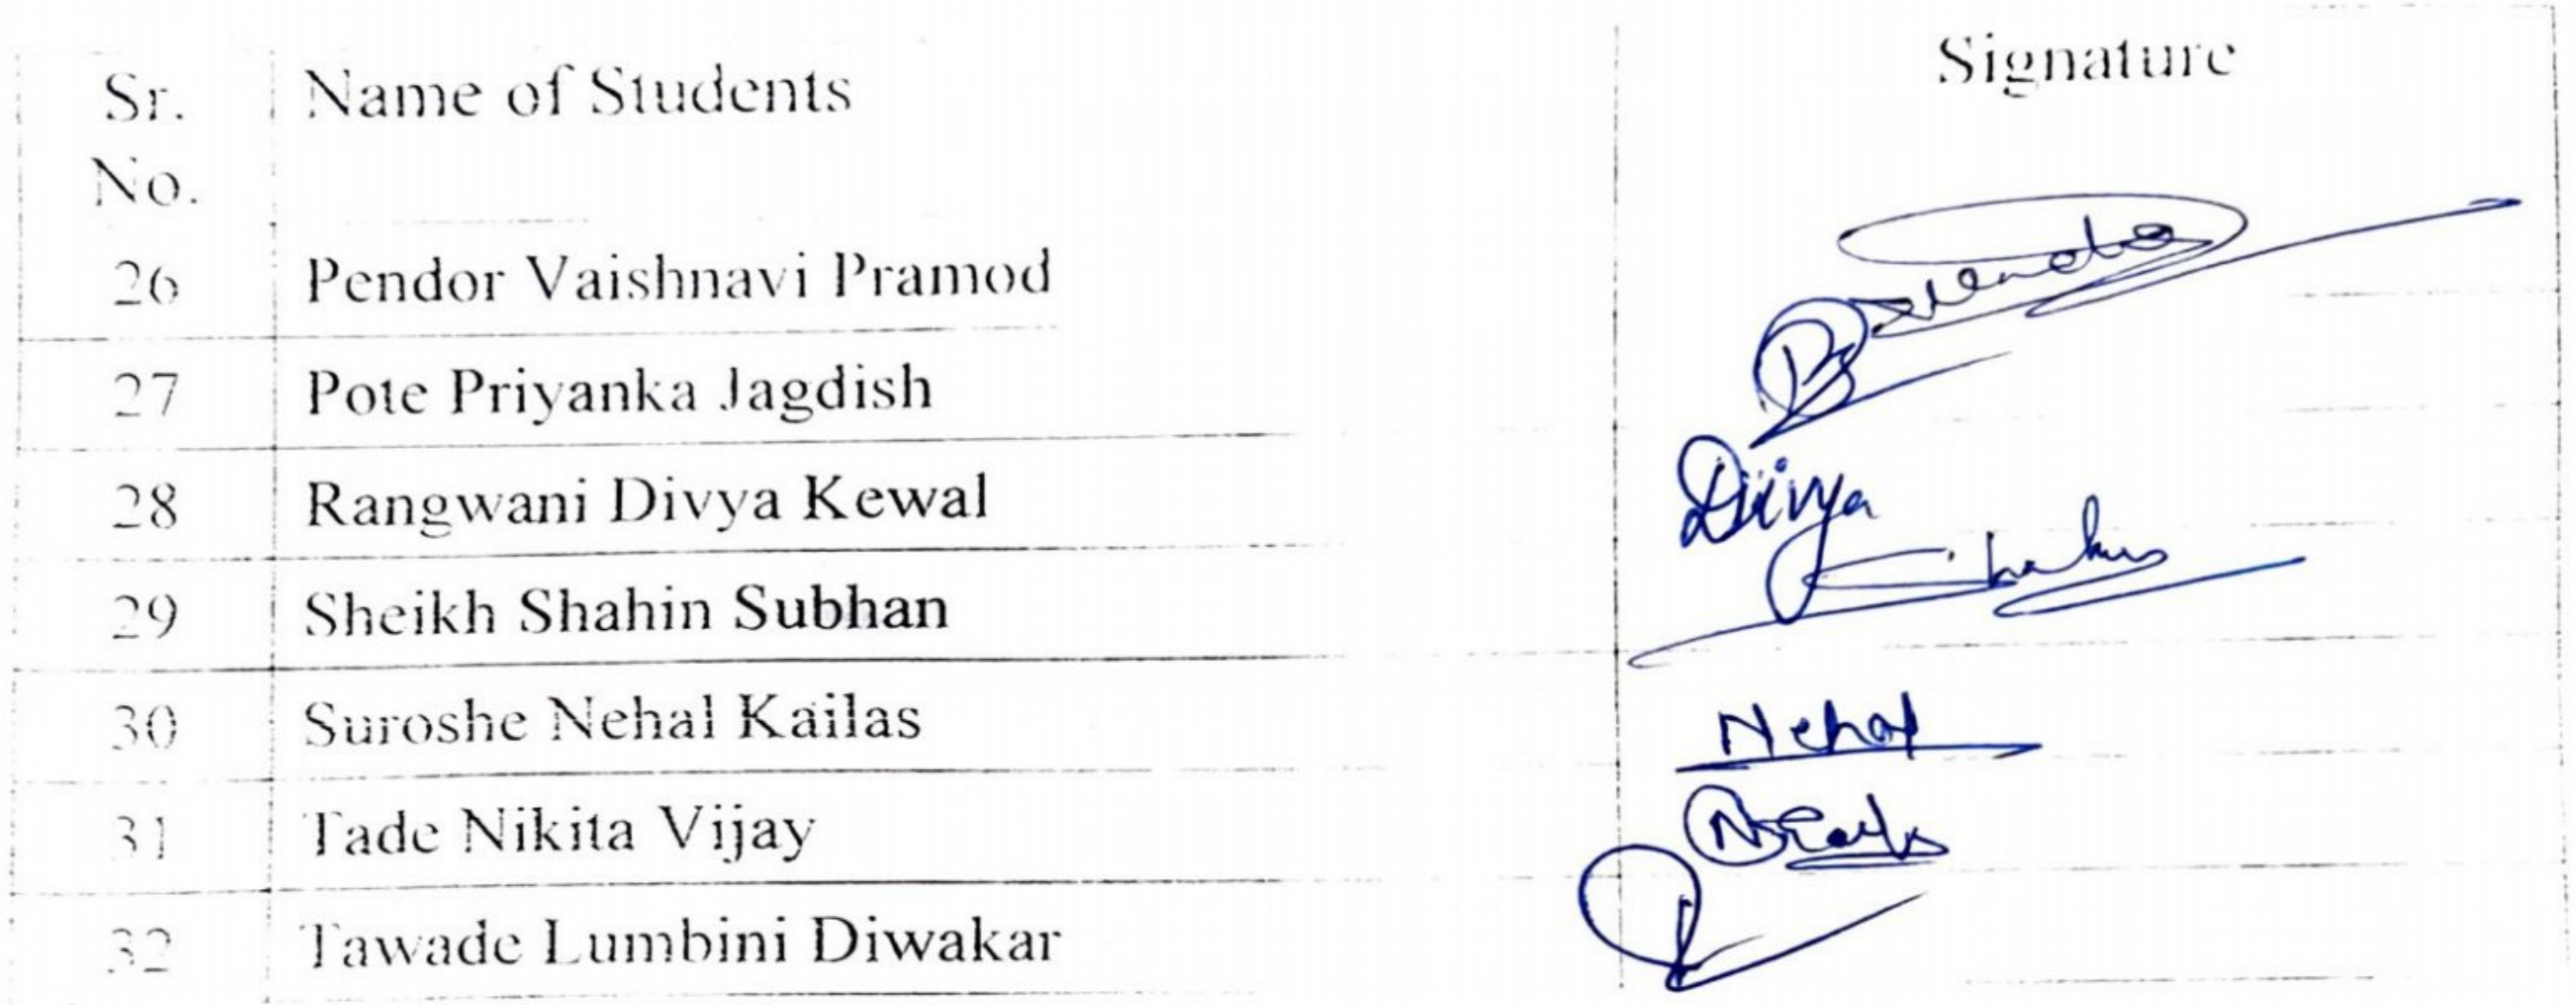 Sr. No. Name of Students Signature
26 Pendor Vaishnavi Pramod
27 Pote Priyanka Jagdish
28 Rangwani Divya Kewal Divya
29 Sheikh Shahin Subhan
30 Suroshe Nehal Kailas Nehal
31 Tade Nikita Vijay
32 Tawade Lumbini Diwakar